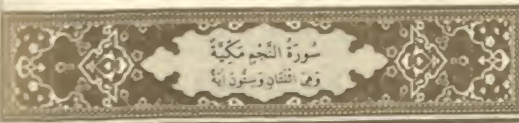 سُورَةُ النَّجْمِ مَكِّيَّةٌ
وَهِيَ اثْنَتَانِ وَسِتُّونَ اٰيَةً